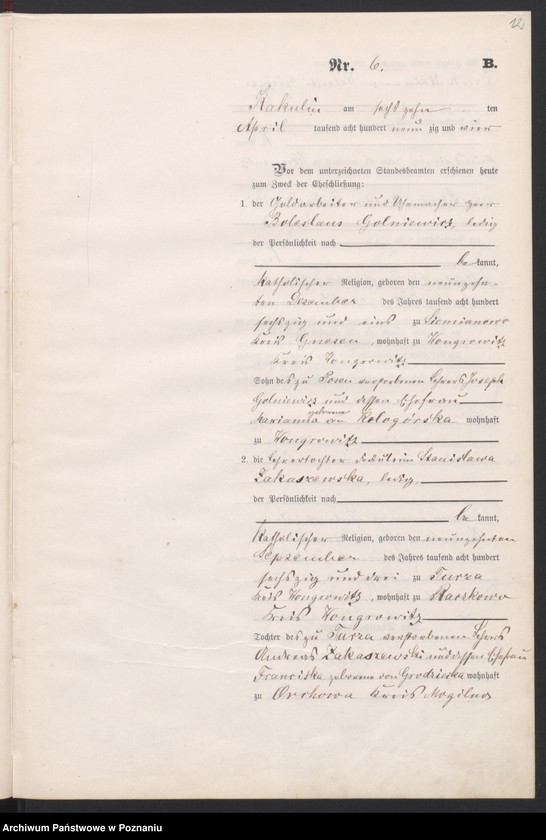 12
Nr. 6. B.
Kakulin am sechszehn ten
April tausend acht hundert neun zig und vier
Vor dem unterzeichneten Standesbeamten erschienen heute
zum Zweck der Eheschließung:
1. der Goldarbeiter und Uhrmacher Herr
Boleslaus Golniewicz, ledig
der Persönlichkeit nach
be kannt,
katholischer Religion, geboren den neunzehn-
ten Dezember des Jahres tausend acht hundert
sechszig und eins zu Siemianowo
Kreis Gnesen, wohnhaft zu Wongrowitz
Kreis Wongrowitz
Sohn des zu Posen verstorbenen Lehrers Joseph
Golniewicz und dessen Ehefrau
Marianna geborene von Kologórska wohnhaft
zu Wongrowitz
2. die Lehrertochter Fräulein Stanislawa
Zakaszewska, ledig,
der Persönlichkeit nach
be kannt,
katholischer Religion, geboren den neunzehnten
September des Jahres tausend acht hundert
sechszig und drei zu Turza
Kreis Wongrowitz, wohnhaft zu Raczkowo
Kreis Wongrowitz
Tochter des zu Turza verstorbenen Lehrers
Andreas Zakaszewski und dessen Ehefrau
Franciska geborene von Grodzicka wohnhaft
zu Orchowo Kreis Mogilno
Archiwum Państwowe w Poznaniu